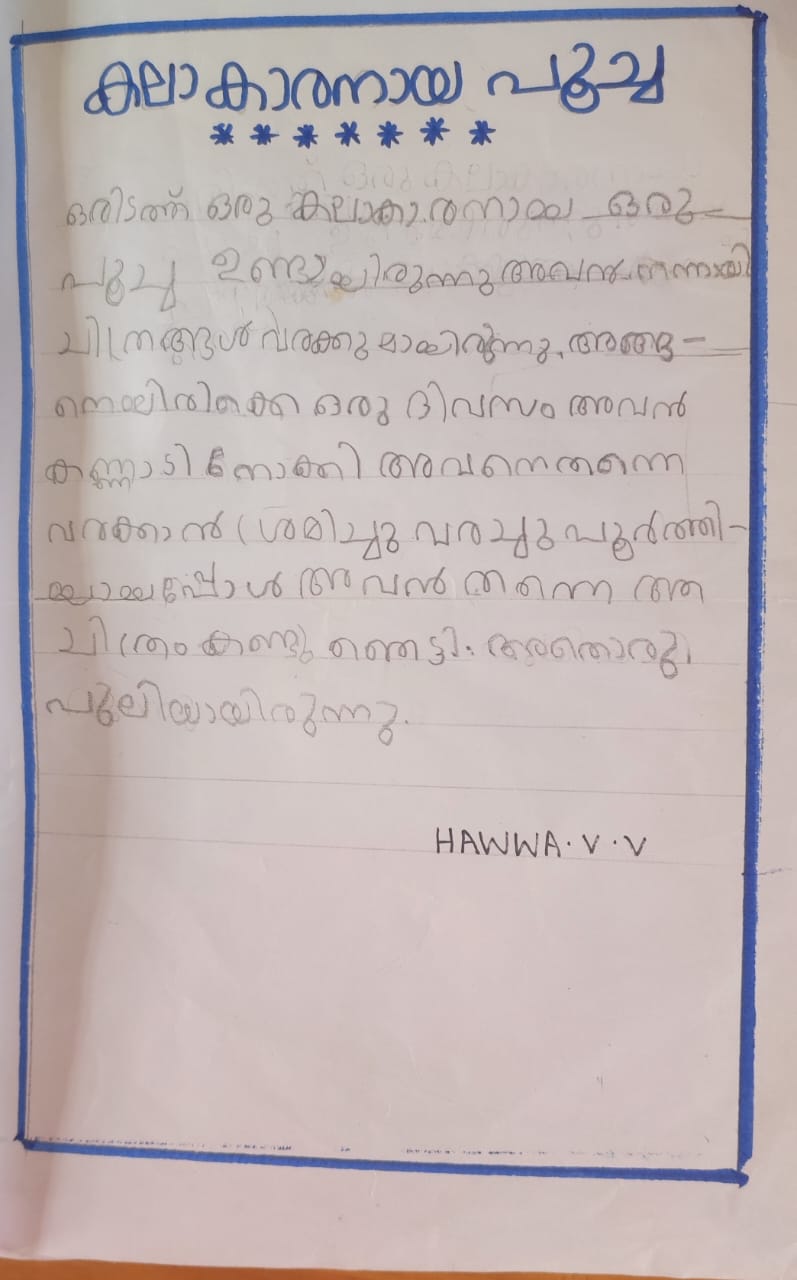 കലാകാരനായ പൂച്ച
*******
ഒരിടത്ത് ഒരു കലാകാരനായ ഒരു
പൂച്ച ഉണ്ടായിരുന്നു അവൻ നന്നായി
ചിത്രങ്ങൾ വരക്കുമായിരുന്നു. അങ്ങ-
നെയിരിക്കെ ഒരു ദിവസം അവൻ
കണ്ണാടി നോക്കി അവനെതന്നെ
വരക്കാൻ ശ്രമിച്ചു വരച്ചു പൂർത്തി-
യായപ്പോൾ അവൻ തന്നെ ആ
ചിത്രം കണ്ടു ഞെട്ടി. അതൊരു
പുലിയായിരുന്നു.
HAWWA.V.V